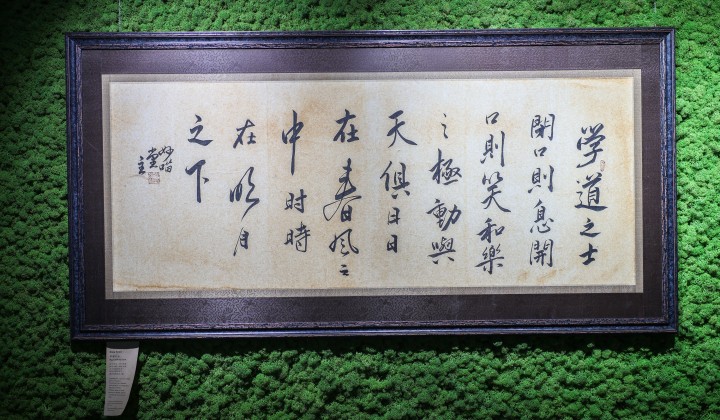 学道之士
閉口則息開
口則笑和樂
之極動與
天俱日日
在春風之
中时時
在明月
之下
堂主